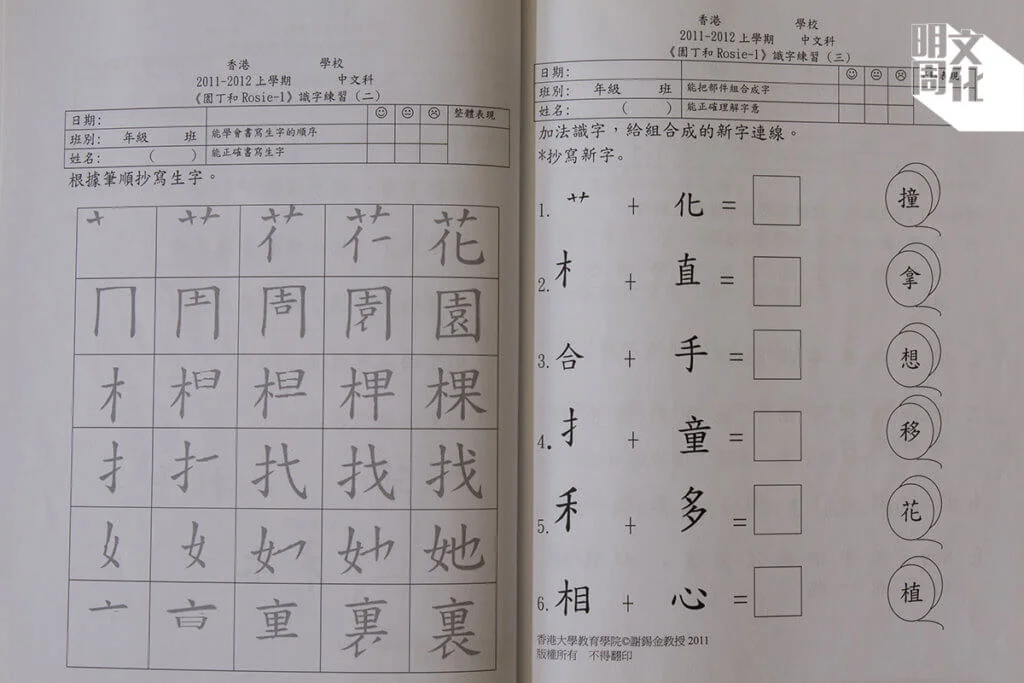 香港 學校
2011-2012 上學期 中文科
《園丁和 Rosie-1》識字練習（二）
日期:
班別: 年級 班
能學會書寫生字的順序
姓名: ( )
能正確書寫生字
整體表現
根據筆順抄寫生字。
花
園
棵
找
她
裏
香港 學校
2011-2012 上學期 中文科
《園丁和 Rosie-1》識字練習（三）
日期:
班別: 年級 班
能把部件組合成字
姓名: ( )
能正確理解字意
加法識字，給組合成的新字連線。
*抄寫新字。
1. 艹 + 化 = 撞
2. 木 + 直 = 拿
3. 合 + 手 = 想
4. 扌 + 童 = 移
5. 禾 + 多 = 花
6. 相 + 心 = 植
香港大學教育學院©謝錫金教授 2011
版權所有 不得翻印
明周文化